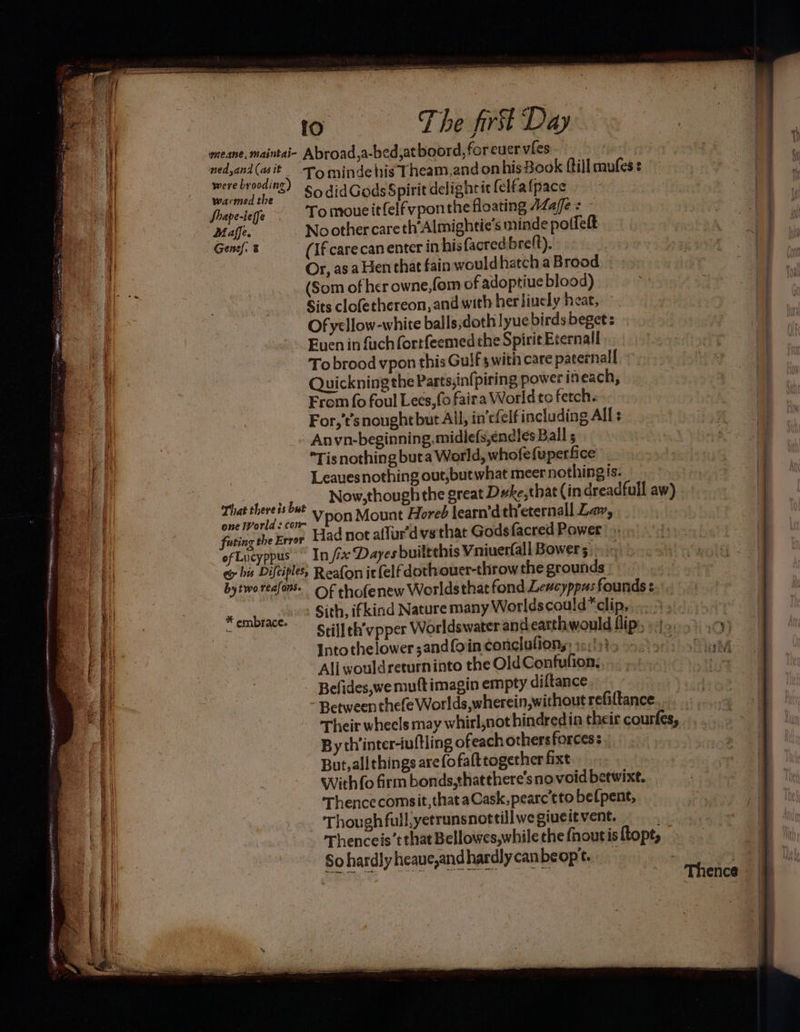 10 The first Day
meane, maintai- Abroad,a-bed,at boord, for euer vses
ned, and (as it To minde his Theam, and on his Book still muses:
were brooding) So did Gods Spirit delight it self a space
warmed the
shape-lesse To moue it self vpon the floating Masse:
Masse. No other care th'Almightie's minde possest
Genes. 1 (If care can enter in his sacred brest).
Or, as a Hen that fain would hatch a Brood
(Som of her owne, som of adoptiue blood)
Sits close thereon, and with her liuely heat,
Of yellow-white balls, doth lyue birds beget:
Euen in such sort seemed the Spirit Eternall
To brood vpon this Gulf; with care paternall
Quickning the Parts, inspiring power in each,
From so foul Lees, so fair a World to fetch.
For, 't's nought but All, in't self including All:
An vn-beginning, midless, endles Ball;
'Tis nothing but a World, whose superfice
Leaues nothing out, but what meer nothing is.
Now, though the great Duke, that (in dreadfull aw)
That there is but Vpon Mount Horeb learn'd th'eternall Law,
one World: con-
futing the Error Had not assur'd vs that Gods sacred Power
of Lucyppus In six Dayes built this Vniuersall Bower;
& his Disciples, Reason it self doth ouer-throw the grounds
by two reasons. Of those new Worlds that fond Leucyppus founds:
Sith, if kind Nature many Worlds could *clip,
* embrace. Still th'vpper Worlds water and earth would slip
Into the lower; and so in conclusion,
All would return into the Old Confusion.
Besides, we must imagin empty distance
Between these Worlds, wherein, without resistance
Their wheels may whirl, not hindred in their courses,
By th'inter-iustling of each others forces:
But, all things are so fast together fixt
With so firm bonds, that there's no void betwixt.
Thence coms it, that a Cask, pearc't to be spent,
Though full, yet runs not till we giue it vent.
Thence is't that Bellowes, while the snout is stopt,
So hardly heaue, and hardly can be op't.
Thence